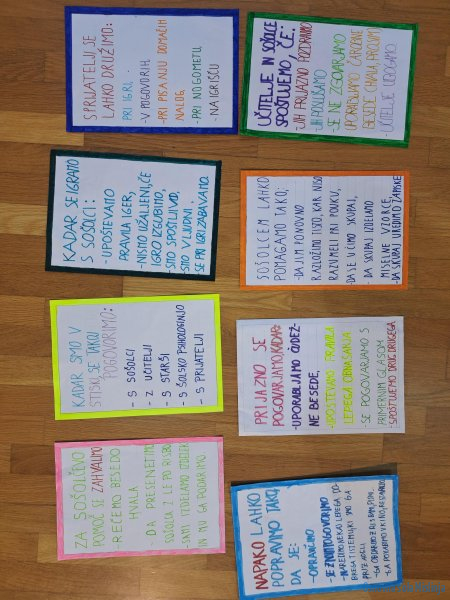 SPRIJATELJI SE
LAHKO DRUŽIMO:
- PRI IGRI,
- V POGOVORIH,
- PRI PISANJU DOMAČIH
NALOG,
- PRI NOGOMETU,
- NA IGRIŠČU
UČITELJE IN SOŠOLCE
SPOŠTUJEMO, ČE:
- JIH PRIJAZNO POZDRAVIMO
- JIH POSLUŠAMO
- SE NE ZGOVARJAMO
- UPORABLJAMO ČAROBNE
BESEDE HVALA, PROSIM
- UČITELJE UBOGAMO
KADAR SE IGRAMO
S SOŠOLCI:
- UPOŠTEVAMO
PRAVILA IGER,
- NISMO UŽALJENI, ČE
IGRO IZGUBIMO,
- SMO SPOŠTLJIVI,
- SMO VLJUDNI,
- SE PRI IGRI ZABAVAMO.
SOŠOLCEM LAHKO
POMAGAMO TAKO:
- DA JIM PONOVNO
RAZLOŽIMO TISTO, KAR NISO
RAZUMELI PRI POUKU,
- DA SE UČIMO SKUPAJ,
- DA SKUPAJ IZDELAMO
MISELNE VZORCE,
- DA SKUPAJ UREDIMO ZAPISKE
KADAR SMO V
STISKI, SE TAKOJ
POGOVORIMO:
- S SOŠOLCI
- Z UČITELJI
- S STARŠI
- S ŠOLSKO PSIHOLOGINJO
- S PRIJATELJI
PRIJAZNO SE
POGOVARJAMO, KADAR:
- UPORABLJAMO ČUDEŽ-
NE BESEDE,
- UPOŠTEVAMO PRAVILA
LEPEGA OBNAŠANJA
- SE POGOVARJAMO S
PRIMERNIM GLASOM
- SPOŠTUJEMO DRUG DRUGEGA
ZA SOŠOLČEVO
POMOČ SE ZAHVALIMO:
- REČEMO BESEDO
HVALA
- DA PRESENETIMO
SOŠOLCA Z LEPO RISBO
- SAMI IZDELAMO IZDELEK
IN MU GA PODARIMO
NAPAKO LAHKO
POPRAVIMO TAKO,
DA SE:
- OPRAVIČIMO